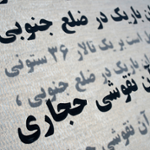 ن باریک در ضلع جنوبی
ل است بر یک تالار ۳۶ ستونی
ن باریک در ضلع جنوبی ،
ن نقوشی حجاری
آن نقوشی